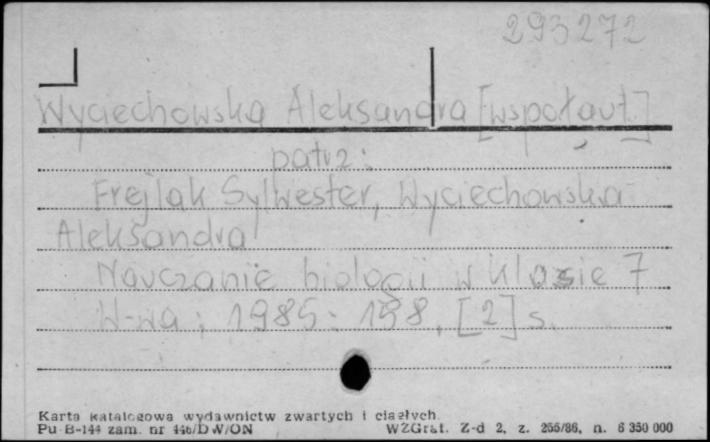 293272
Wyciechowska Aleksandra [współaut.]
patrz:
Frejlak Sylwester, Wyciechowska
Aleksandra
Nauczanie biologii w klasie 7
W-wa ; 1985 : 158, [2] s.
Karta katalogowa wydawnictw zwartych i ciągłych.
Pu B-144 zam. nr 446/DW/ON WZGraf. Z-d 2, z. 256/86, n. 6 350 000